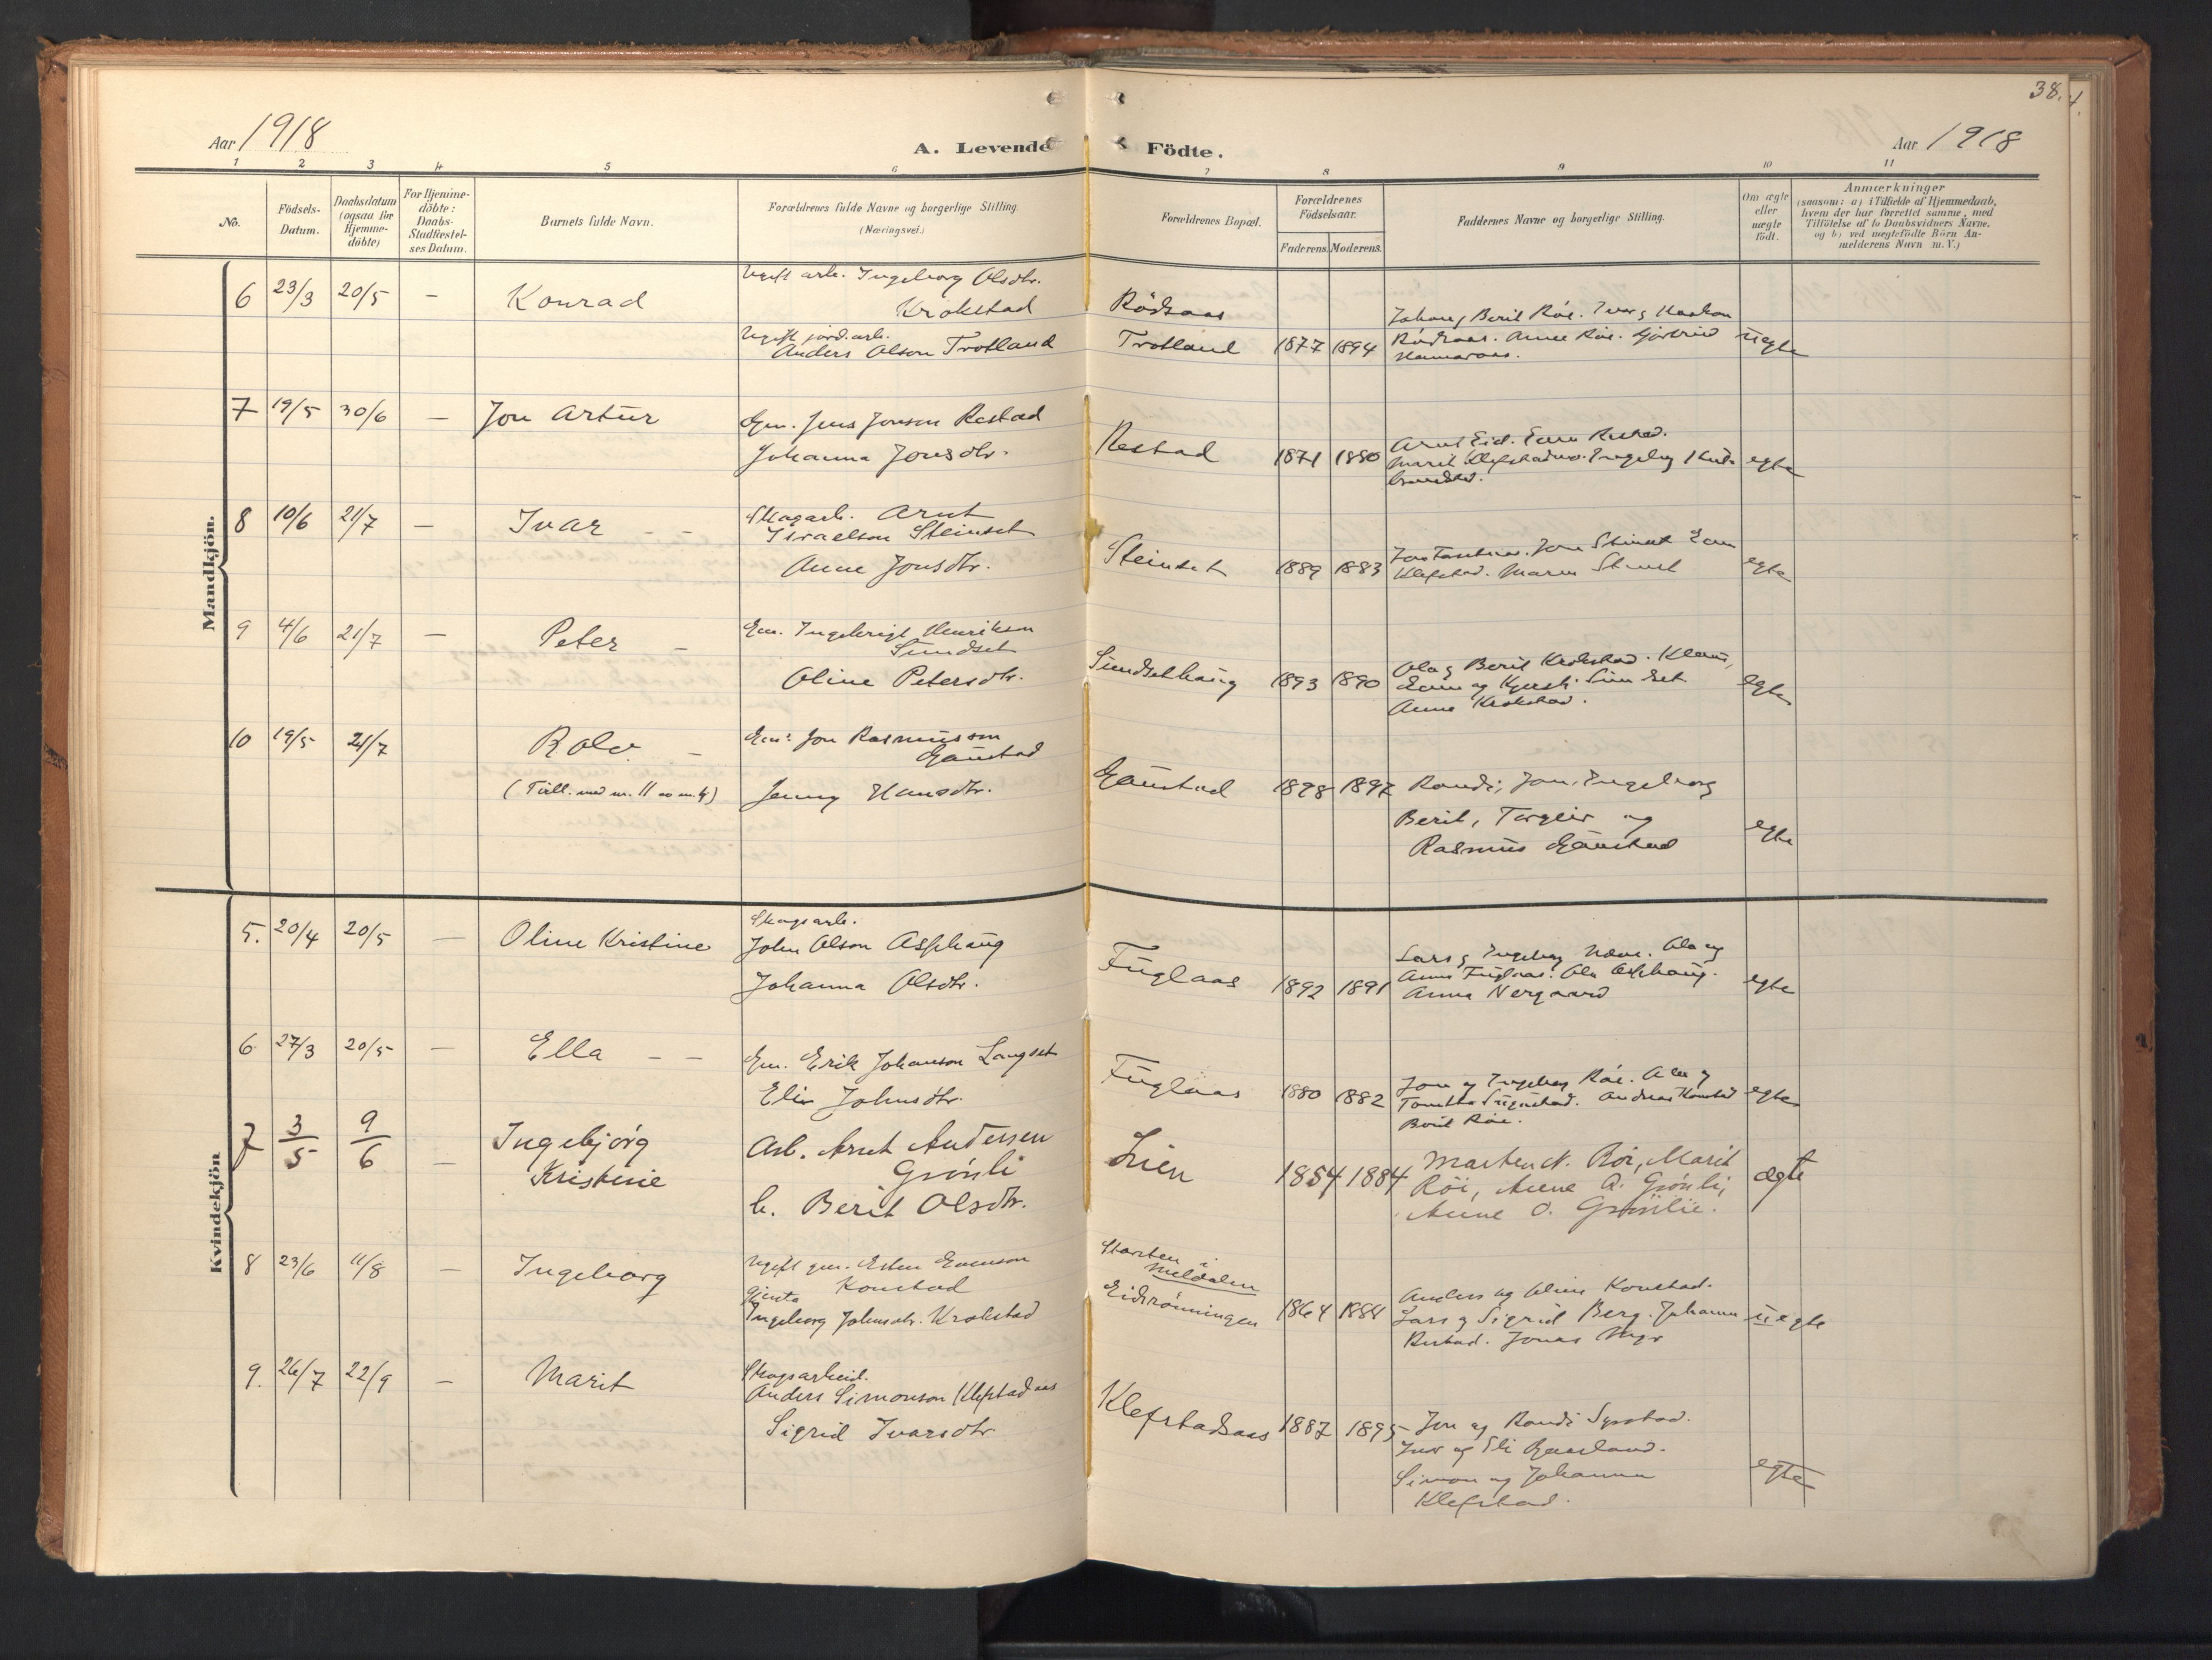 38.
Aar 1918
A. Levende Födte.
Aar 1918
1 2 3 4 5 6 7 8 9 10 11
No.
Födsels-
Datum.
Daabsdatum
(ogsaa for
Hjemme-
döbte)
For Hjemme-
döbte:
Daabs-
Stadfæstel-
ses Datum.
Barnets fulde Navn.
Forældrenes fulde Navne og borgerlige Stilling.
(Næringsvei.)
Forældrenes Bopæl.
Forældrenes
Födselsaar.
Faderens. Moderens.
Faddernes Navne og borgerlige Stilling.
Om ægte
eller
uægte
født.
Anmærkninger
(saasom: a) i Tilfælde af Hjemmedaab,
hvem der har forrettet samme, med
Tilföielse af to Daabsvidners Navne,
og b) ved uægtefödte Börn An-
melderens Navn m.V.)
Mandkjön.
6 23/3 20/5 – Konrad
Ugift arb. Ingeborg Olsdtr.
Krokstad
Ugift jord.arb.
Anders Olson Trotland
Rödsaas
Trotland 1877 1894
Johan og Berit Röe. Ivar og Haakon
Rödsaas. Anne Röe. Gjertrud
Hamaraas.
uegte
7 19/5 30/6 – Jon Artur
Gm. Jens Jonson Restad
Johanna Jonsdtr.
Restad 1871 1880
Arnt Eid. Even Restad.
Marit Klefstadmo. Ingeborg
egte
8 10/6 21/7 – Ivar – –
Skogarb. Arnt
Israelson Steinset
Anne Jonsdtr.
Steinset 1889 1883
Jon Steinset
Klefstad. Maren Steinset
egte
9 4/6 21/7 – Peter –
Gm. Ingebrigt Henrikson
Sundset
Oline Petersdtr.
Sundsethaug 1893 1890
Ola og Berit Krokstad. Klaus,
Even og Kjersti Sundset
Anne Krokstad.
egte
10 19/5 21/7 Rolv –
(Tvill. med nr. 11)
Gm: Jon Rasmusson
Gaustad
Jenny Hansdtr.
Gaustad 1898 1897
Randi, Jon, Ingeborg
Berit, Torgeir og
Rasmus Gaustad
egte
Kvindekjön
5. 20/4 20/5 – Oline Kristine
Skogsarb.
John Olson Asphaug
Johanna Olsdtr.
Fuglaas 1892 1891
Lars og Ingeborg Ola og
Anne Fuglaas. Ola Asphaug.
Anna Nergaard
egte
6 27/3 20/5 – Ella – –
Gm. Erik Johanson Langset
Elin Johnsdtr.
Fuglaas 1880 1882
Jon og Ingeborg Röe.
Andreas Konstad
Berit Röe.
egte
7 3/5 9/6 – Ingebjörg
Kristine
Arb. Arnt Andersen
Grönli
h. Berit Olsdtr.
Lien 1854 1884
Marten N. Röi, Marit
Röi, Anne A. Grönli,
Anne O. Grönlie.
ægte
8 23/6 11/8 – Ingeborg
Ugift gm. Esten Evenson
Konstad
gjenta
Ingeborg Johnsdtr. Krokstad
Storsten i
Meldalen
Eidsrönningen 1864 1884
Anders og Oline Konstad.
Lars og Sigrid Berg. Johanna
Restad. Jonas Myr
uegte
9. 26/7 22/9 – Marit
Skogsarbeid.
Anders Simonson Klefstadaas
Sigrid Ivarsdtr
Klefstadaas 1887 1895
Jon og Randi Syrstad.
Ivar og Eli
Simon og Johanna
Klefstad.
egte